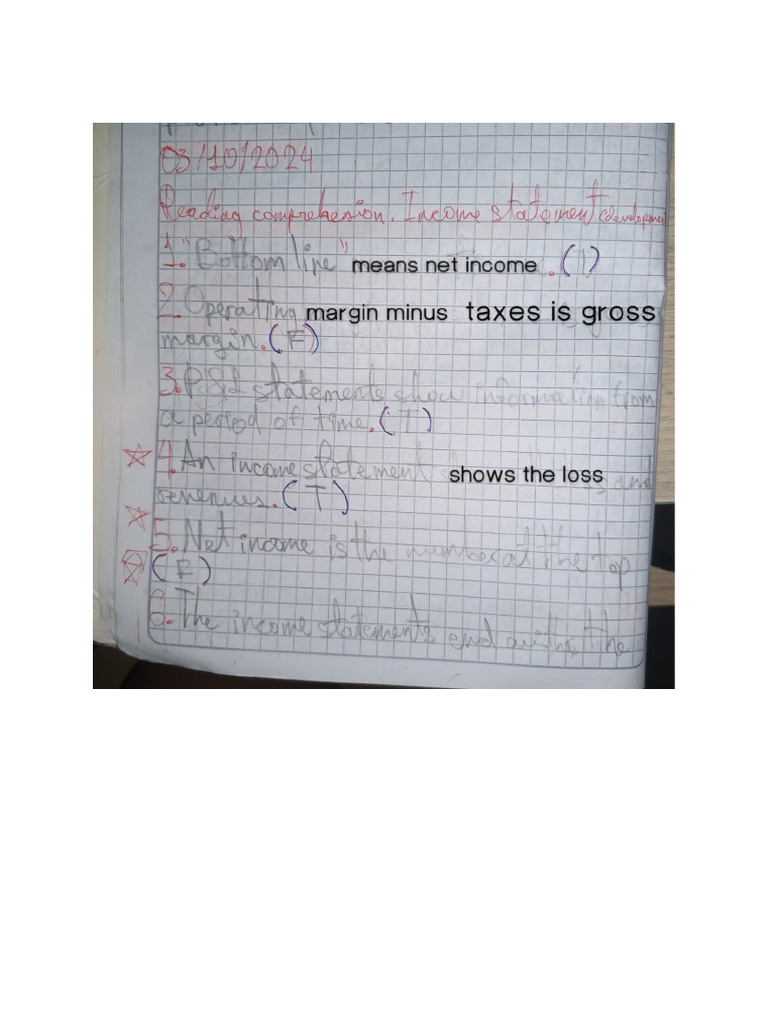 03/10/2024
Reading comprehesion. Income statement
1."Bottom line" means net income. (T)
2. Operating margin minus taxes is gross
margin. (F)
3. P&L statements show information from
a period of time. (T)
4. An income statement shows the loss and
revenues. (T)
5. Net income is the number at the top
(F)
6. The income statements end with the